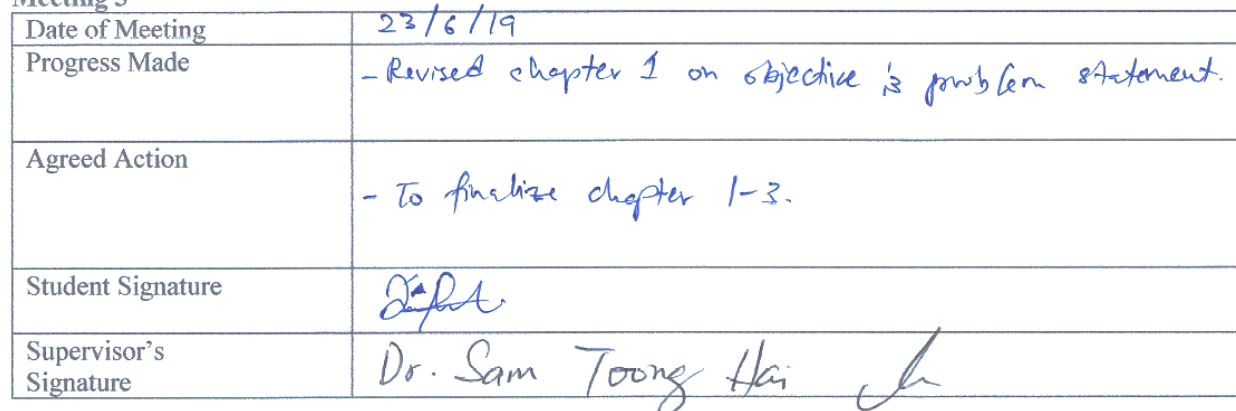 Meeting 3
Date of Meeting 23/6/19
Progress Made - Revised chapter 1 on objective & problem statement.
Agreed Action
- To finalize chapter 1-3.
Student Signature
Supervisor's
Signature Dr. Sam Toong Hai